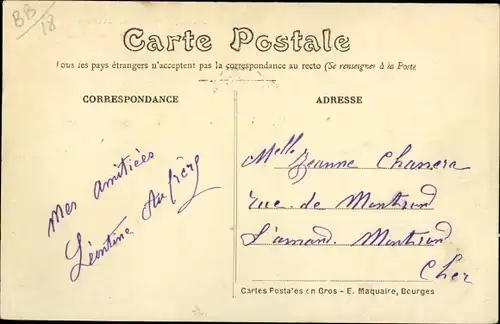 BB/18
Carte Postale
Tous les pays étrangers n'acceptent pas la correspondance au recto (Se renseigner à la Poste
CORRESPONDANCE
ADRESSE
Mes amitiées
Léontine
Melle Jeanne
rue de Montrond
St amand Montrond
Cher
Cartes Postales en Gros - E. Maquaire, Bourges